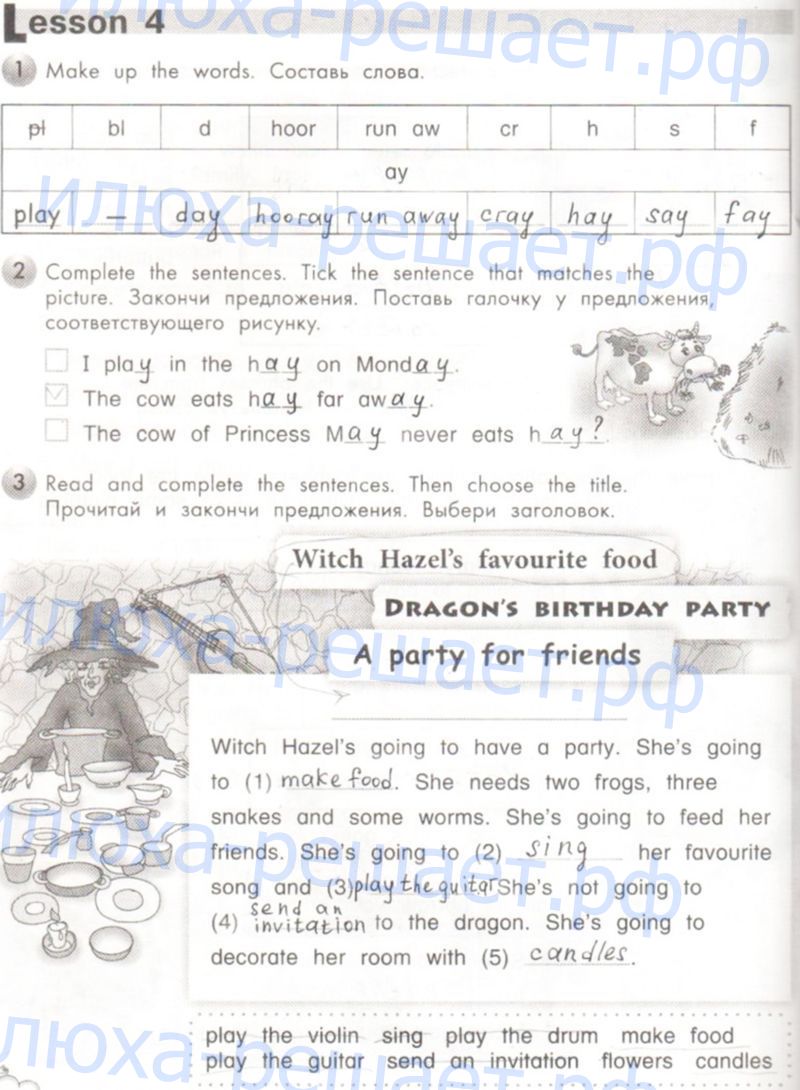 Lesson 4
1 Make up the words. Составь слова.
pl bl d hoor run aw cr h s f
ay
play — day hooray run away cray hay say fay
2 Complete the sentences. Tick the sentence that matches the
picture. Закончи предложения. Поставь галочку у предложения,
соответствующего рисунку.
I play in the hay on Monday.
The cow eats hay far away.
The cow of Princess May never eats hay?
3 Read and complete the sentences. Then choose the title.
Прочитай и закончи предложения. Выбери заголовок.
Witch Hazel's favourite food
DRAGON'S BIRTHDAY PARTY
A party for friends
Witch Hazel's going to have a party. She's going
to (1) make food. She needs two frogs, three
snakes and some worms. She's going to feed her
friends. She's going to (2) sing her favourite
song and (3) play the guitar She's not going to
(4) send an invitation to the dragon. She's going to
decorate her room with (5) candles.
play the violin sing play the drum make food
play the guitar send an invitation flowers candles
илюха-решает.рф
илюха-решает.рф
илюха-решает.рф
илюха-решает.рф
илюха-решает.рф